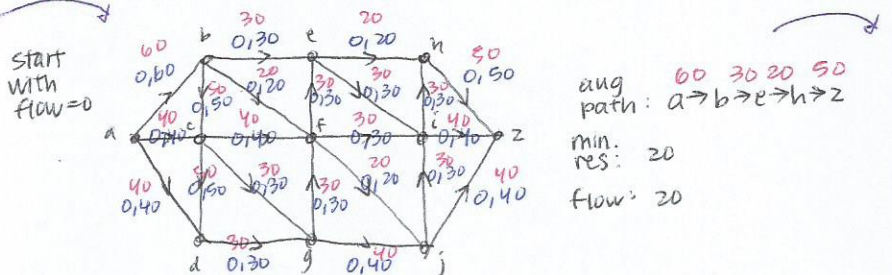 start
with
flow=0
60
0,60
30
0,30
20
0,20
50
0,50
b
e
h
50
0,50
20
0,20
30
0,30
30
0,30
30
0,30
a
40
0,40
c
40
0,40
f
30
0,30
i
40
0,40
z
40
0,40
50
0,50
30
0,30
30
0,30
20
0,20
30
0,30
40
0,40
d
30
0,30
g
40
0,40
j
60 30 20 50
aug path: a→b→e→h→z
min. res: 20
flow: 20